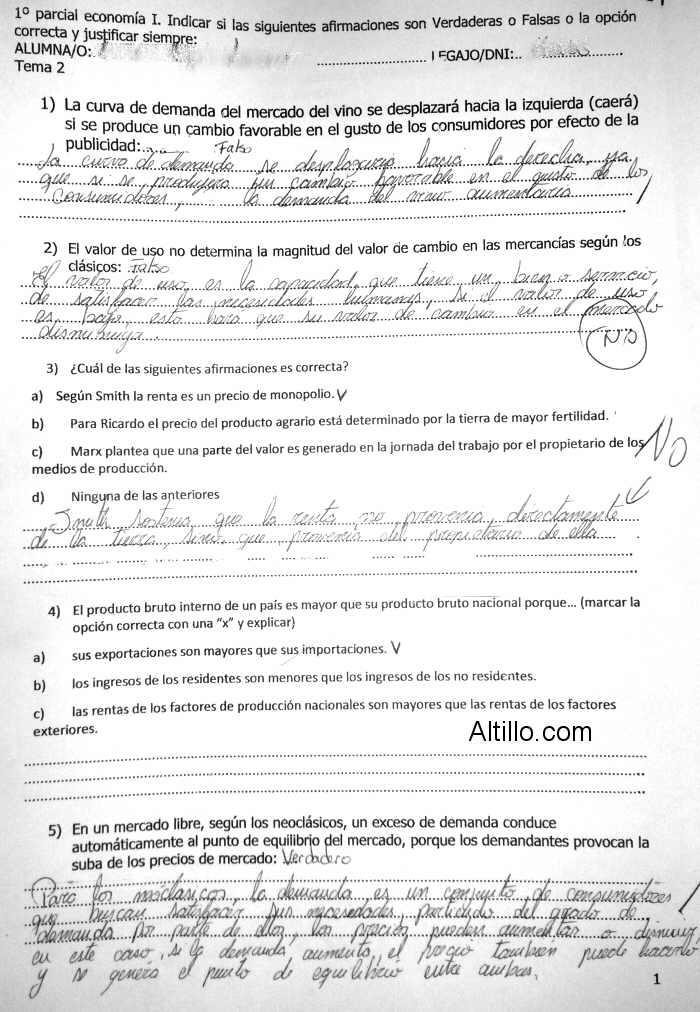 1º parcial economía I. Indicar si las siguientes afirmaciones son Verdaderas o Falsas o la opción
correcta y justificar siempre:
ALUMNA/O: LEGAJO/DNI:
Tema 2
1) La curva de demanda del mercado del vino se desplazará hacia la izquierda (caerá)
si se produce un cambio favorable en el gusto de los consumidores por efecto de la
publicidad: Falso
La curva de demanda se desplazaria hacia la derecha, ya
que si se produjera un cambio favorable en el gusto de los
consumidores, la demanda del mismo aumentaria
2) El valor de uso no determina la magnitud del valor de cambio en las mercancías según los
clásicos: Falso
El valor de uso, es la capacidad que tiene un bien o servicio,
de satisfacer las necesidades humanas, si el valor de uso
es bajo, esto hara que su valor de cambio en el mercado
disminuya.
NO
3) ¿Cuál de las siguientes afirmaciones es correcta?
a) Según Smith la renta es un precio de monopolio. V
b) Para Ricardo el precio del producto agrario está determinado por la tierra de mayor fertilidad.
c) Marx plantea que una parte del valor es generado en la jornada del trabajo por el propietario de los
medios de producción.
NO
d) Ninguna de las anteriores
Smith sostenia que la renta no provenia directamente
de la tierra, sino que provenia del propietario de ella
4) El producto bruto interno de un país es mayor que su producto bruto nacional porque... (marcar la
opción correcta con una "x" y explicar)
a) sus exportaciones son mayores que sus importaciones. V
b) los ingresos de los residentes son menores que los ingresos de los no residentes.
c) las rentas de los factores de producción nacionales son mayores que las rentas de los factores
exteriores.
Altillo.com
5) En un mercado libre, según los neoclásicos, un exceso de demanda conduce
automáticamente al punto de equilibrio del mercado, porque los demandantes provocan la
suba de los precios de mercado: Verdadero
Para los neoclasicos, la demanda es un conjunto de consumidores
que buscan satisfacer sus necesidades, partiendo del grado de
demanda por parte de ellos, los precios pueden aumentar o disminuir,
en este caso, si la demanda aumenta, el precio tambien puede hacerlo
y se genera el punto de equilibrio entre ambas.
1